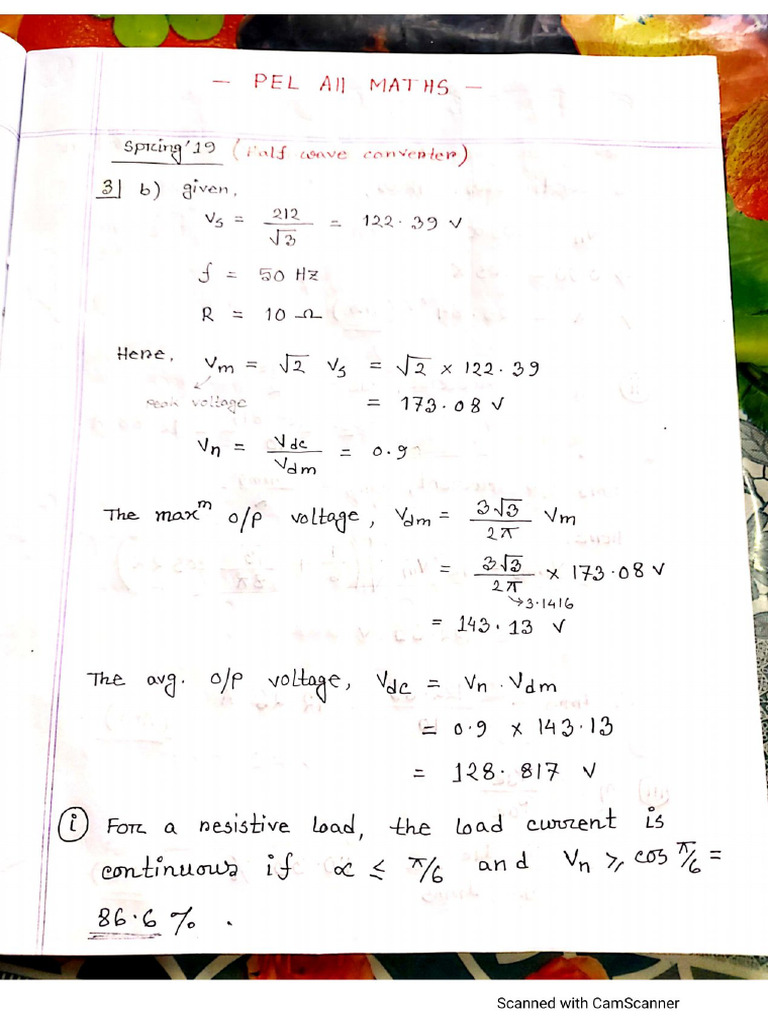 - PEL All MATHS -
Spring'19 (Half wave converter)
3| b) given,
Vs = 212/√3 = 122.39 V
f = 50 Hz
R = 10 Ω
Here, Vm = √2 Vs = √2 × 122.39
peak voltage
= 173.08 V
Vn = Vdc/Vdm = 0.9
The max^m o/p voltage, Vdm = 3√3/2π Vm
= 3√3/2π × 173.08 V
→3.1416
= 143.13 V
The avg. o/p voltage, Vdc = Vn . Vdm
= 0.9 × 143.13
= 128.817 V
(i) For a resistive load, the load current is
continuous if α ≤ π/6 and Vn ≥ cos π/6 =
86.6 % .
Scanned with CamScanner